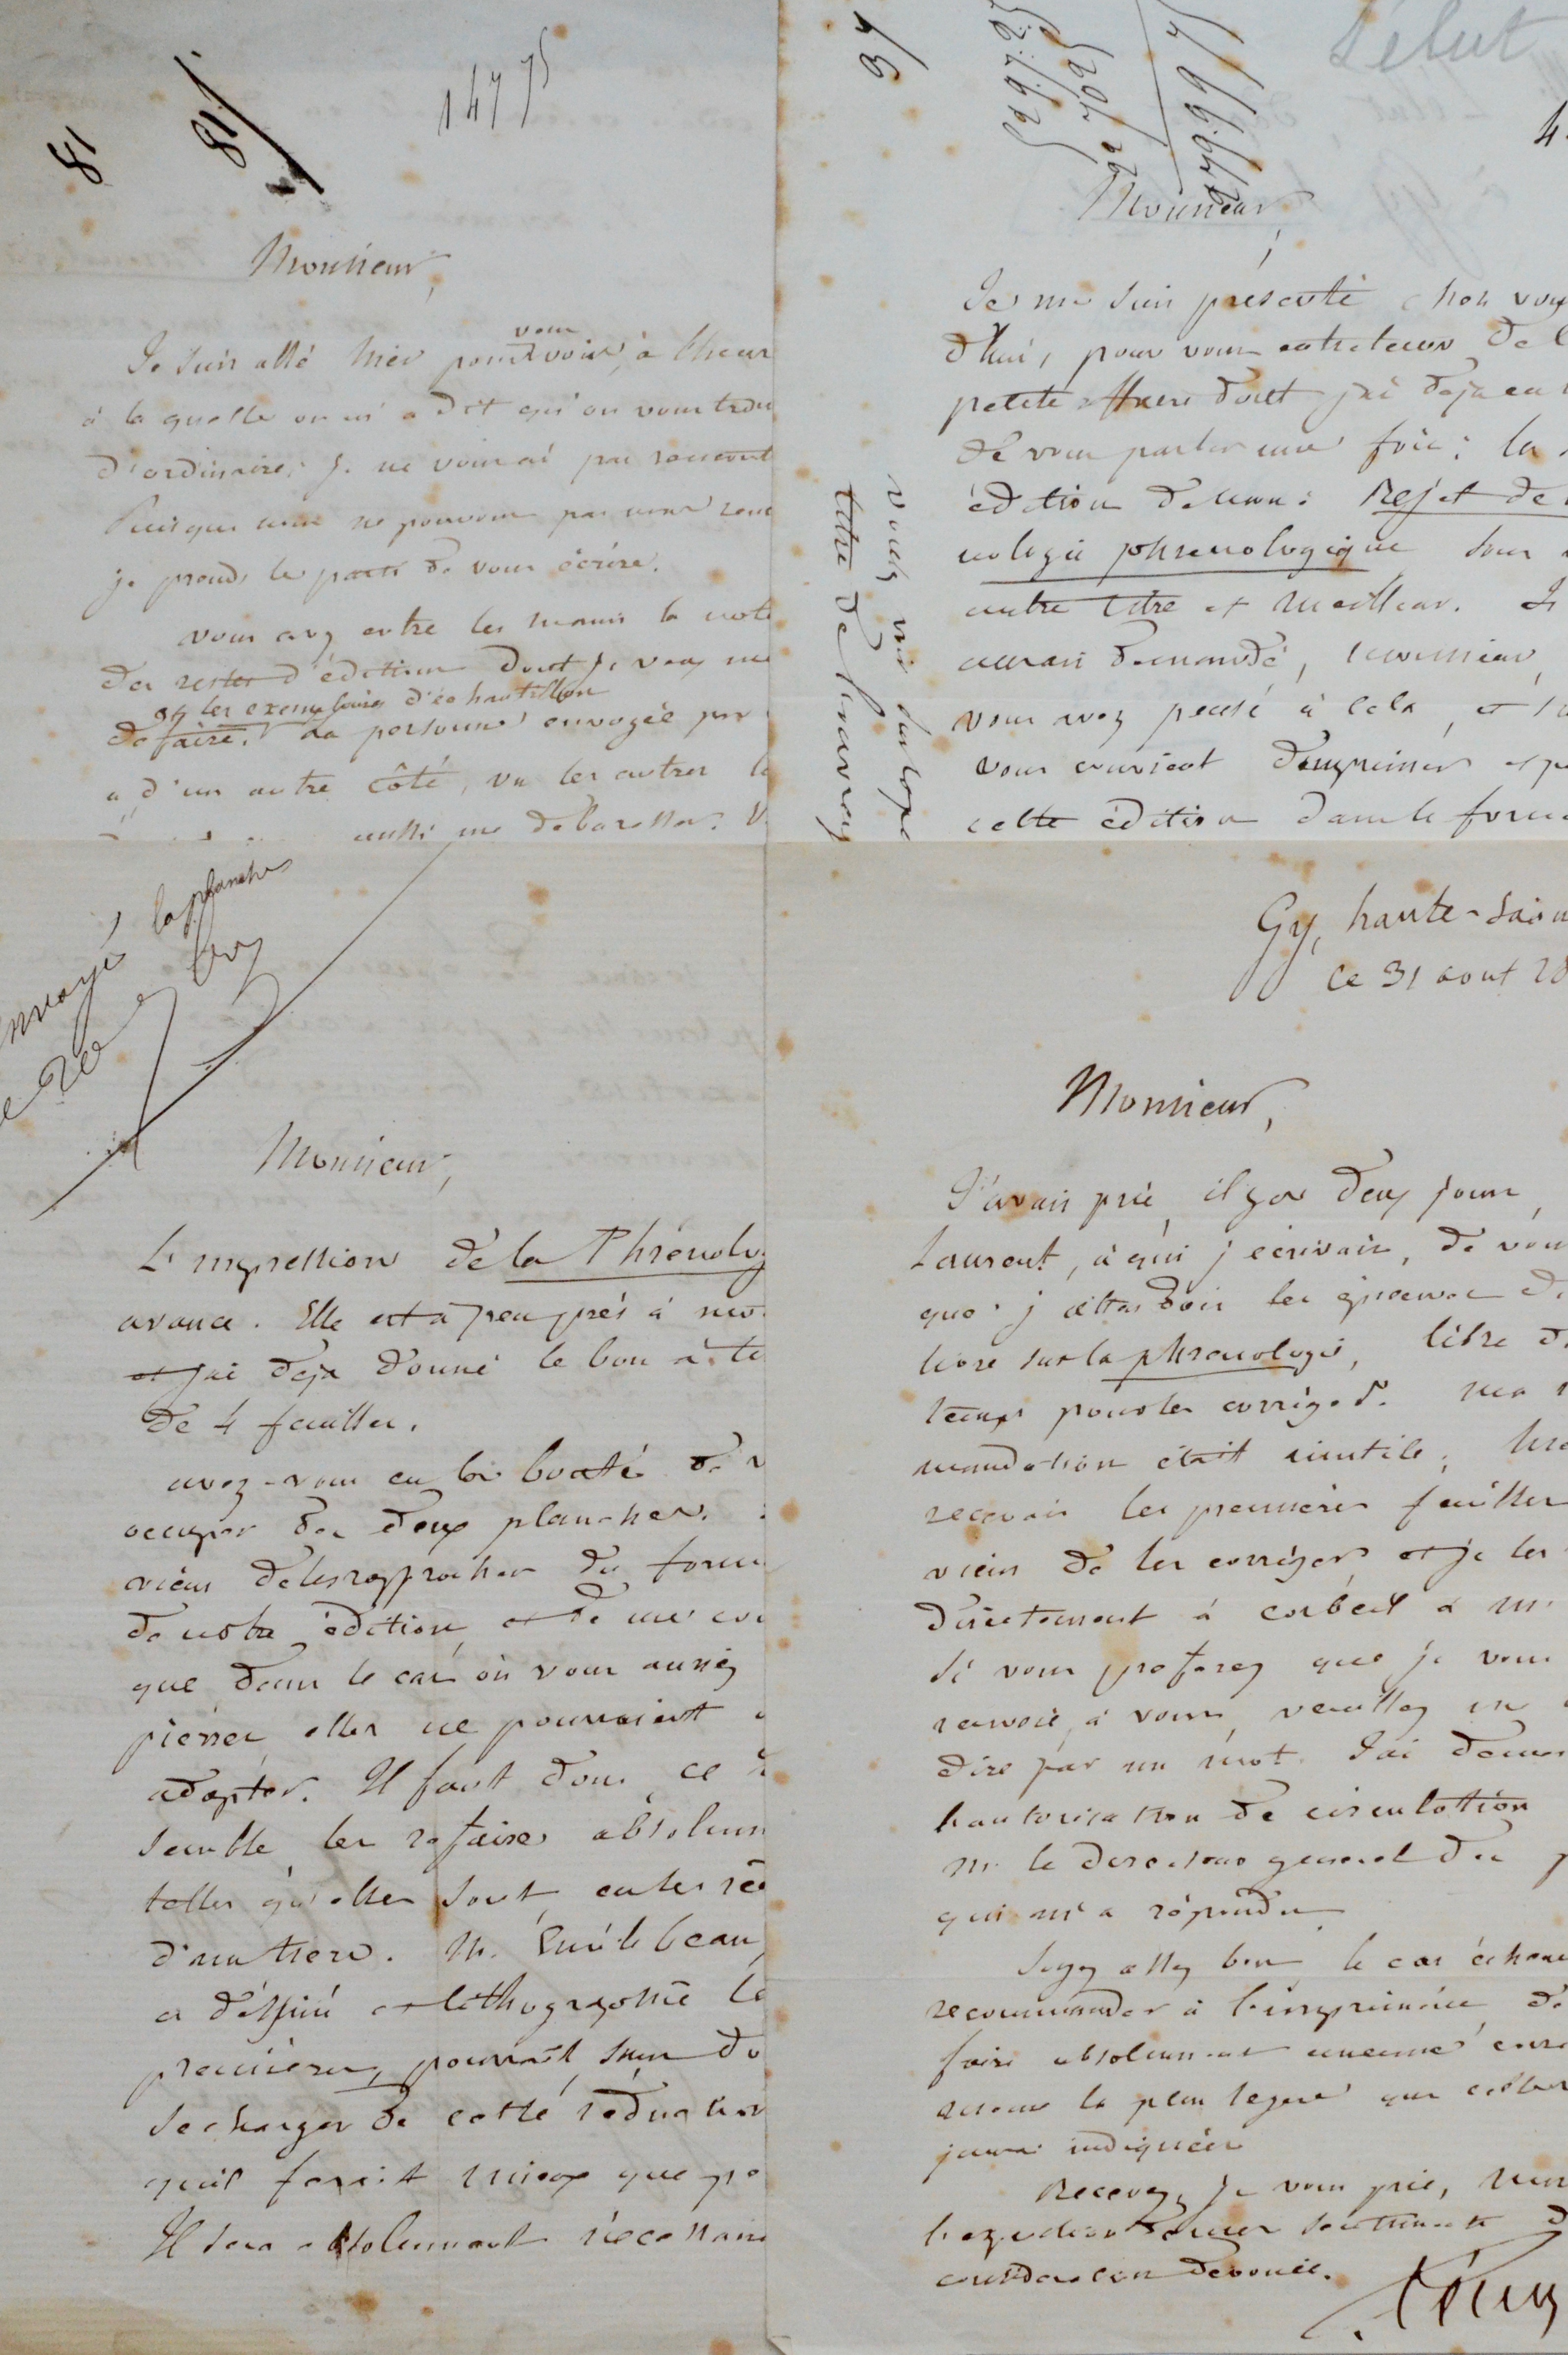 81
81
14775
Monsieur,
Je suis allé hier pour vous voir, à l'heur
à la quelle on m'a dit qu'on vous trou
d'ordinaire. Je ne vous ai pas rencont
Puisque nous ne pouvons pas nous renc
je prends le parti de vous écrire.
vous avez entre les mains la note
des restes d'édition dont je veux me
défaire. et les exemplaires d'échantillon La personne envoyée par
a d'un autre côté, vu les autres
aussi me débarasser. V
Lélut
4
Monsieur,
Je me suis présenté chez vous
d'hui, pour vous entretenir de l
petite affaire dont j'ai déjà eu
de vous parler une fois: la
édition de mon: Rejet de
nologie phrénologique sous
autre titre et meilleur. Je
aurais demandé, monsieur,
vous avez pensé à cela, et s
vous convient d'imprimer
cette édition dans le form
lettre de
envoyé la planche
Monsieur,
L'impression de la Phrénolog
avance. Elle est à peu près à moi
et j'ai déjà donné le bon à ti
de 4 feuilles.
avez-vous eu la bonté de v
occuper des deux planches.
viens de les rapprocher du form
de notre édition et de me co
que dans le cas où vous auriez
pierres elles ne pourraient
adapter. Il faut donc, ce
semble les refaire absolum
telles qu'elles sont, en les ré
d'un tiers. M. Emile beau,
a dessiné et lithographié le
premières, pourrait, sans do
se charger de cette réduction
qu'il ferait mieux que pe
Il sera absolument nécessaire
Gy, haute-Saôn
ce 31 aout 18
Monsieur,
J'avais prié, il y a deux jours,
Laurent, à qui j'écrivais, de vous
que j'attendais les épreuves d
livre sur la phrénologie, libre d
temps pour les corriger. Ma
mandation était inutile.
recevoir les premières feuilles
viens de les corriger et je les
directement à corbeil à M.
Si vous préférez que je vous
renvoie à vous, veuillez me
dire par un mot. J'ai deman
l'autorisation de circulation
M. le directeur general des p
qui m'a répondu.
Soyez assez bon le cas échéan
recommander à l'imprimerie de
faire absolument aucune corre
même la plus légère que celles
j'aurai indiquées
Recevez, je vous prie, mon
l'expression de mes sentiments d
considération dévouée.